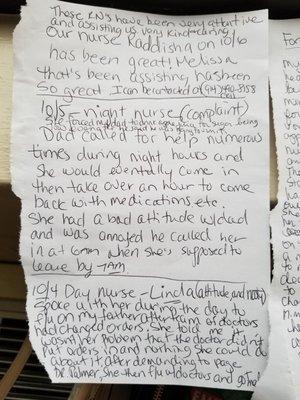 These RN's have been very attentive
and assisting us very kind & caring
Our nurse Kaddisha on 10/6
has been great! Melissa
that's been assisting has been
So great I can be contacted
10/5 - night nurse (complaint)
Dad called for help numerous
times during night hours and
She would eventually come in
then take over an hour to come
back with medications etc.
She had a bad attitude w/ dad
and was annoyed he called her
in at 6am when she's supposed to
leave by 7AM.
10/4 Day nurse - Linda (attitude and nasty)
Spoke with her during the day to
f/u on my father after team of doctors
had changed orders. She told me it
wasn't her problem that the doctor didn't
put orders in and nothing she could do
about it after demanding to page
Dr. Palmer, she then f/u w/ doctors and